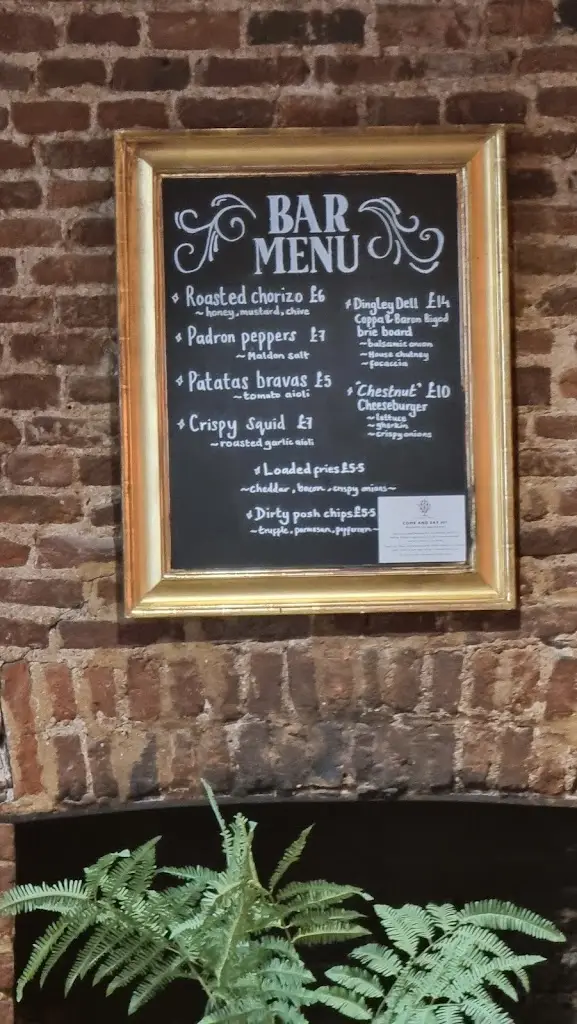 BAR
MENU
Roasted chorizo £6
~ honey, mustard, chive
Padron peppers £7
~ Maldon salt
Patatas bravas £5
~ tomato aioli
Crispy squid £7
~ roasted garlic aioli
Dingley Dell £14
Coppa & Baron Bigod
brie board
~ balsamic onion
~ House chutney
~ focaccia
"Chestnut" £10
Cheeseburger
~ lettuce
~ gherkin
~ crispy onions
Loaded fries £5.5
~ cheddar, bacon, crispy onions ~
Dirty posh chips £5.5
~ truffle, parmesan,
COME AND SAY HI